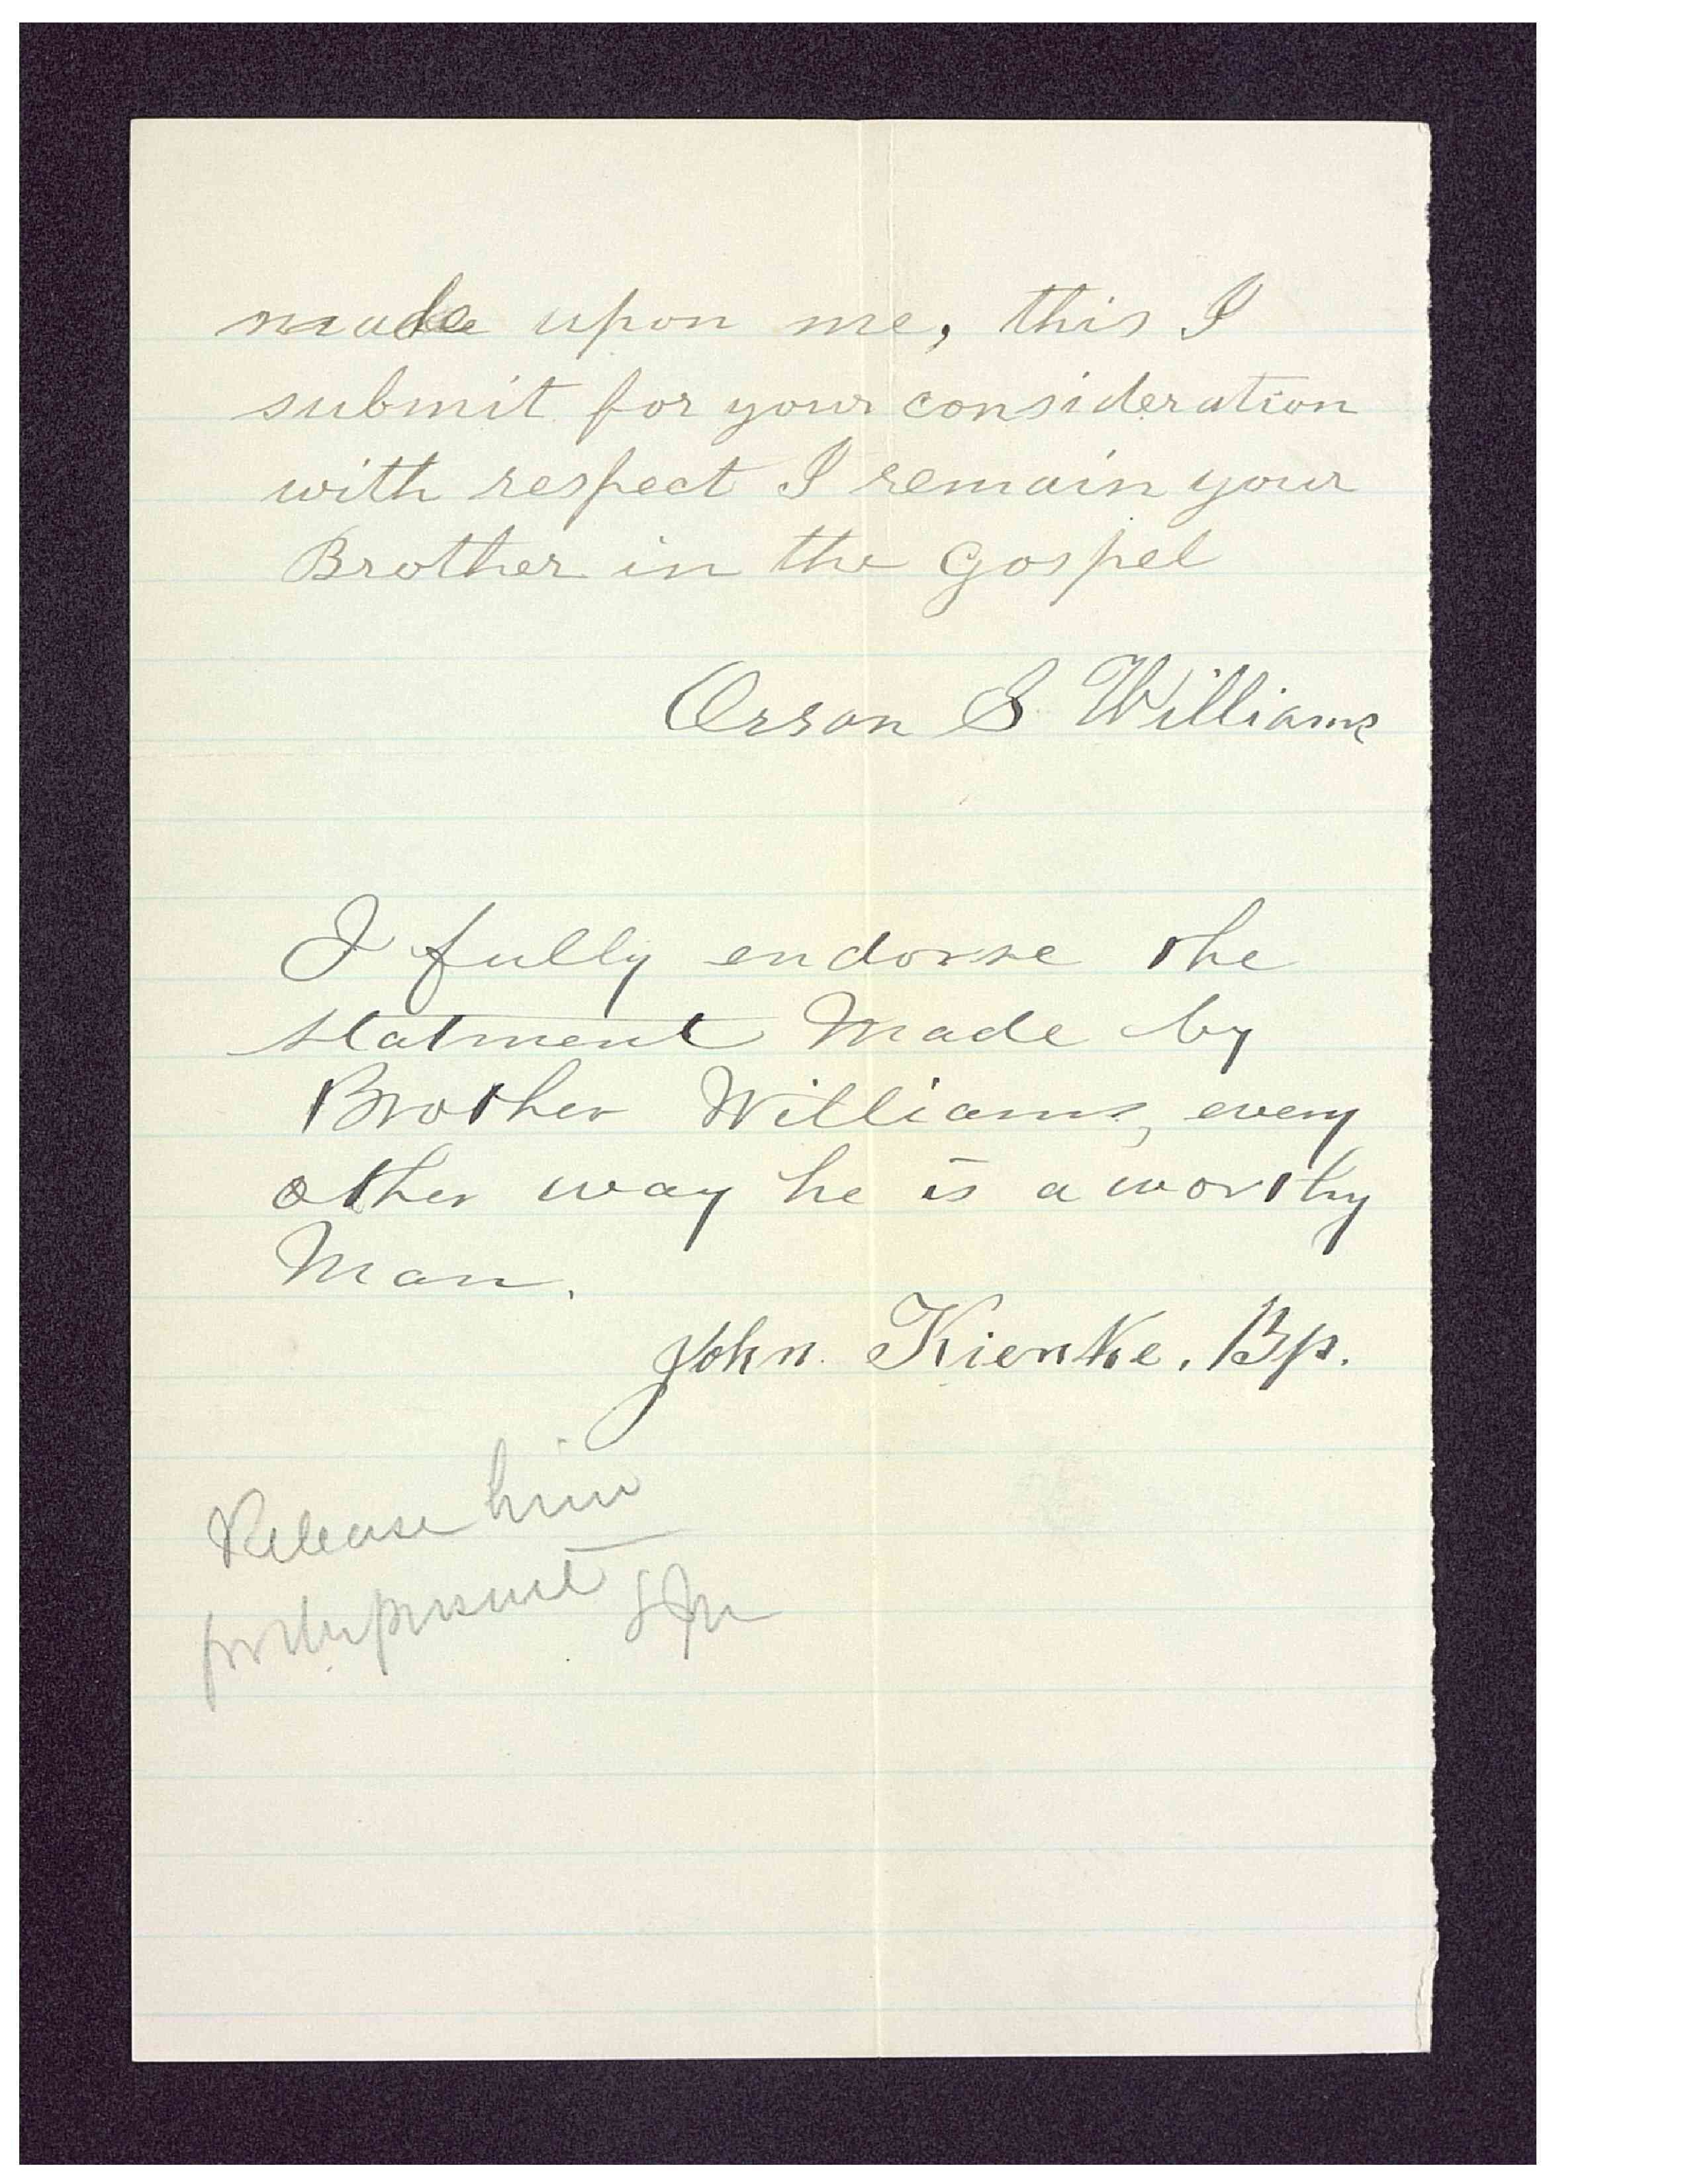 made upon me, this I
submit for your consideration
with respect I remain your
Brother in the gospel
Orson S Williams
I fully endorse the
statment Made by
Brother Williams, every
other way he is a worthy
Man.
John Kienke. Bp.
Release him
for the present